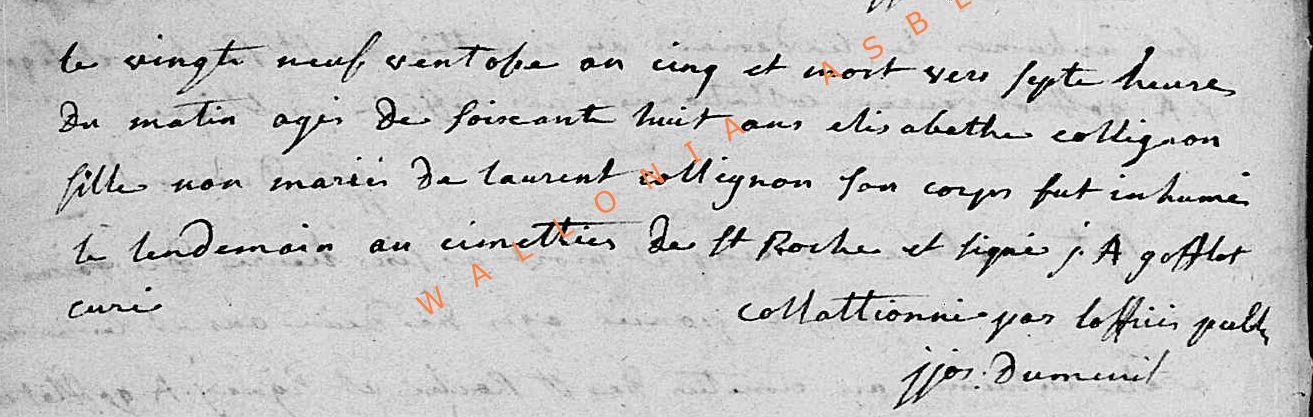 le vingte neuf ventose an cinq et mort vers septe heures
du matin agés de soiscante huit ans elisabethe collignon
fille non mariés de laurent collignon son corps fut inhumés
le lendemain au cimetties de st Roche et signé j. A gofflot
curé collattionné par loffiiés publ
jjos: Dumenil
WALLONIA ASBL